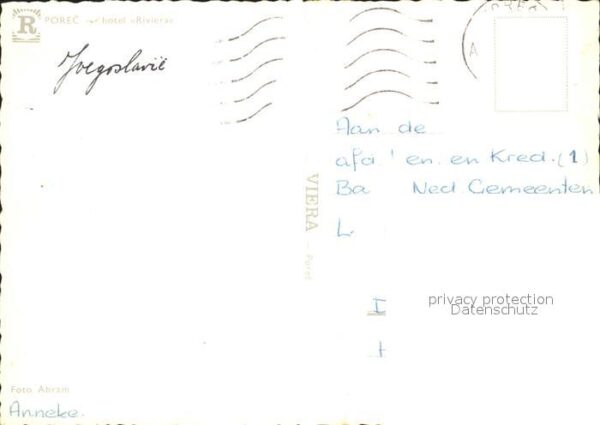 R
POREČ - hotel «Riviera»
Joegoslavië
Aan de
afd. en en Kred. (1)
Ba Ned Gemeenten
L.
VIERA - Poreč
I
privacy protection
Datenschutz
Foto Abram
Anneke.